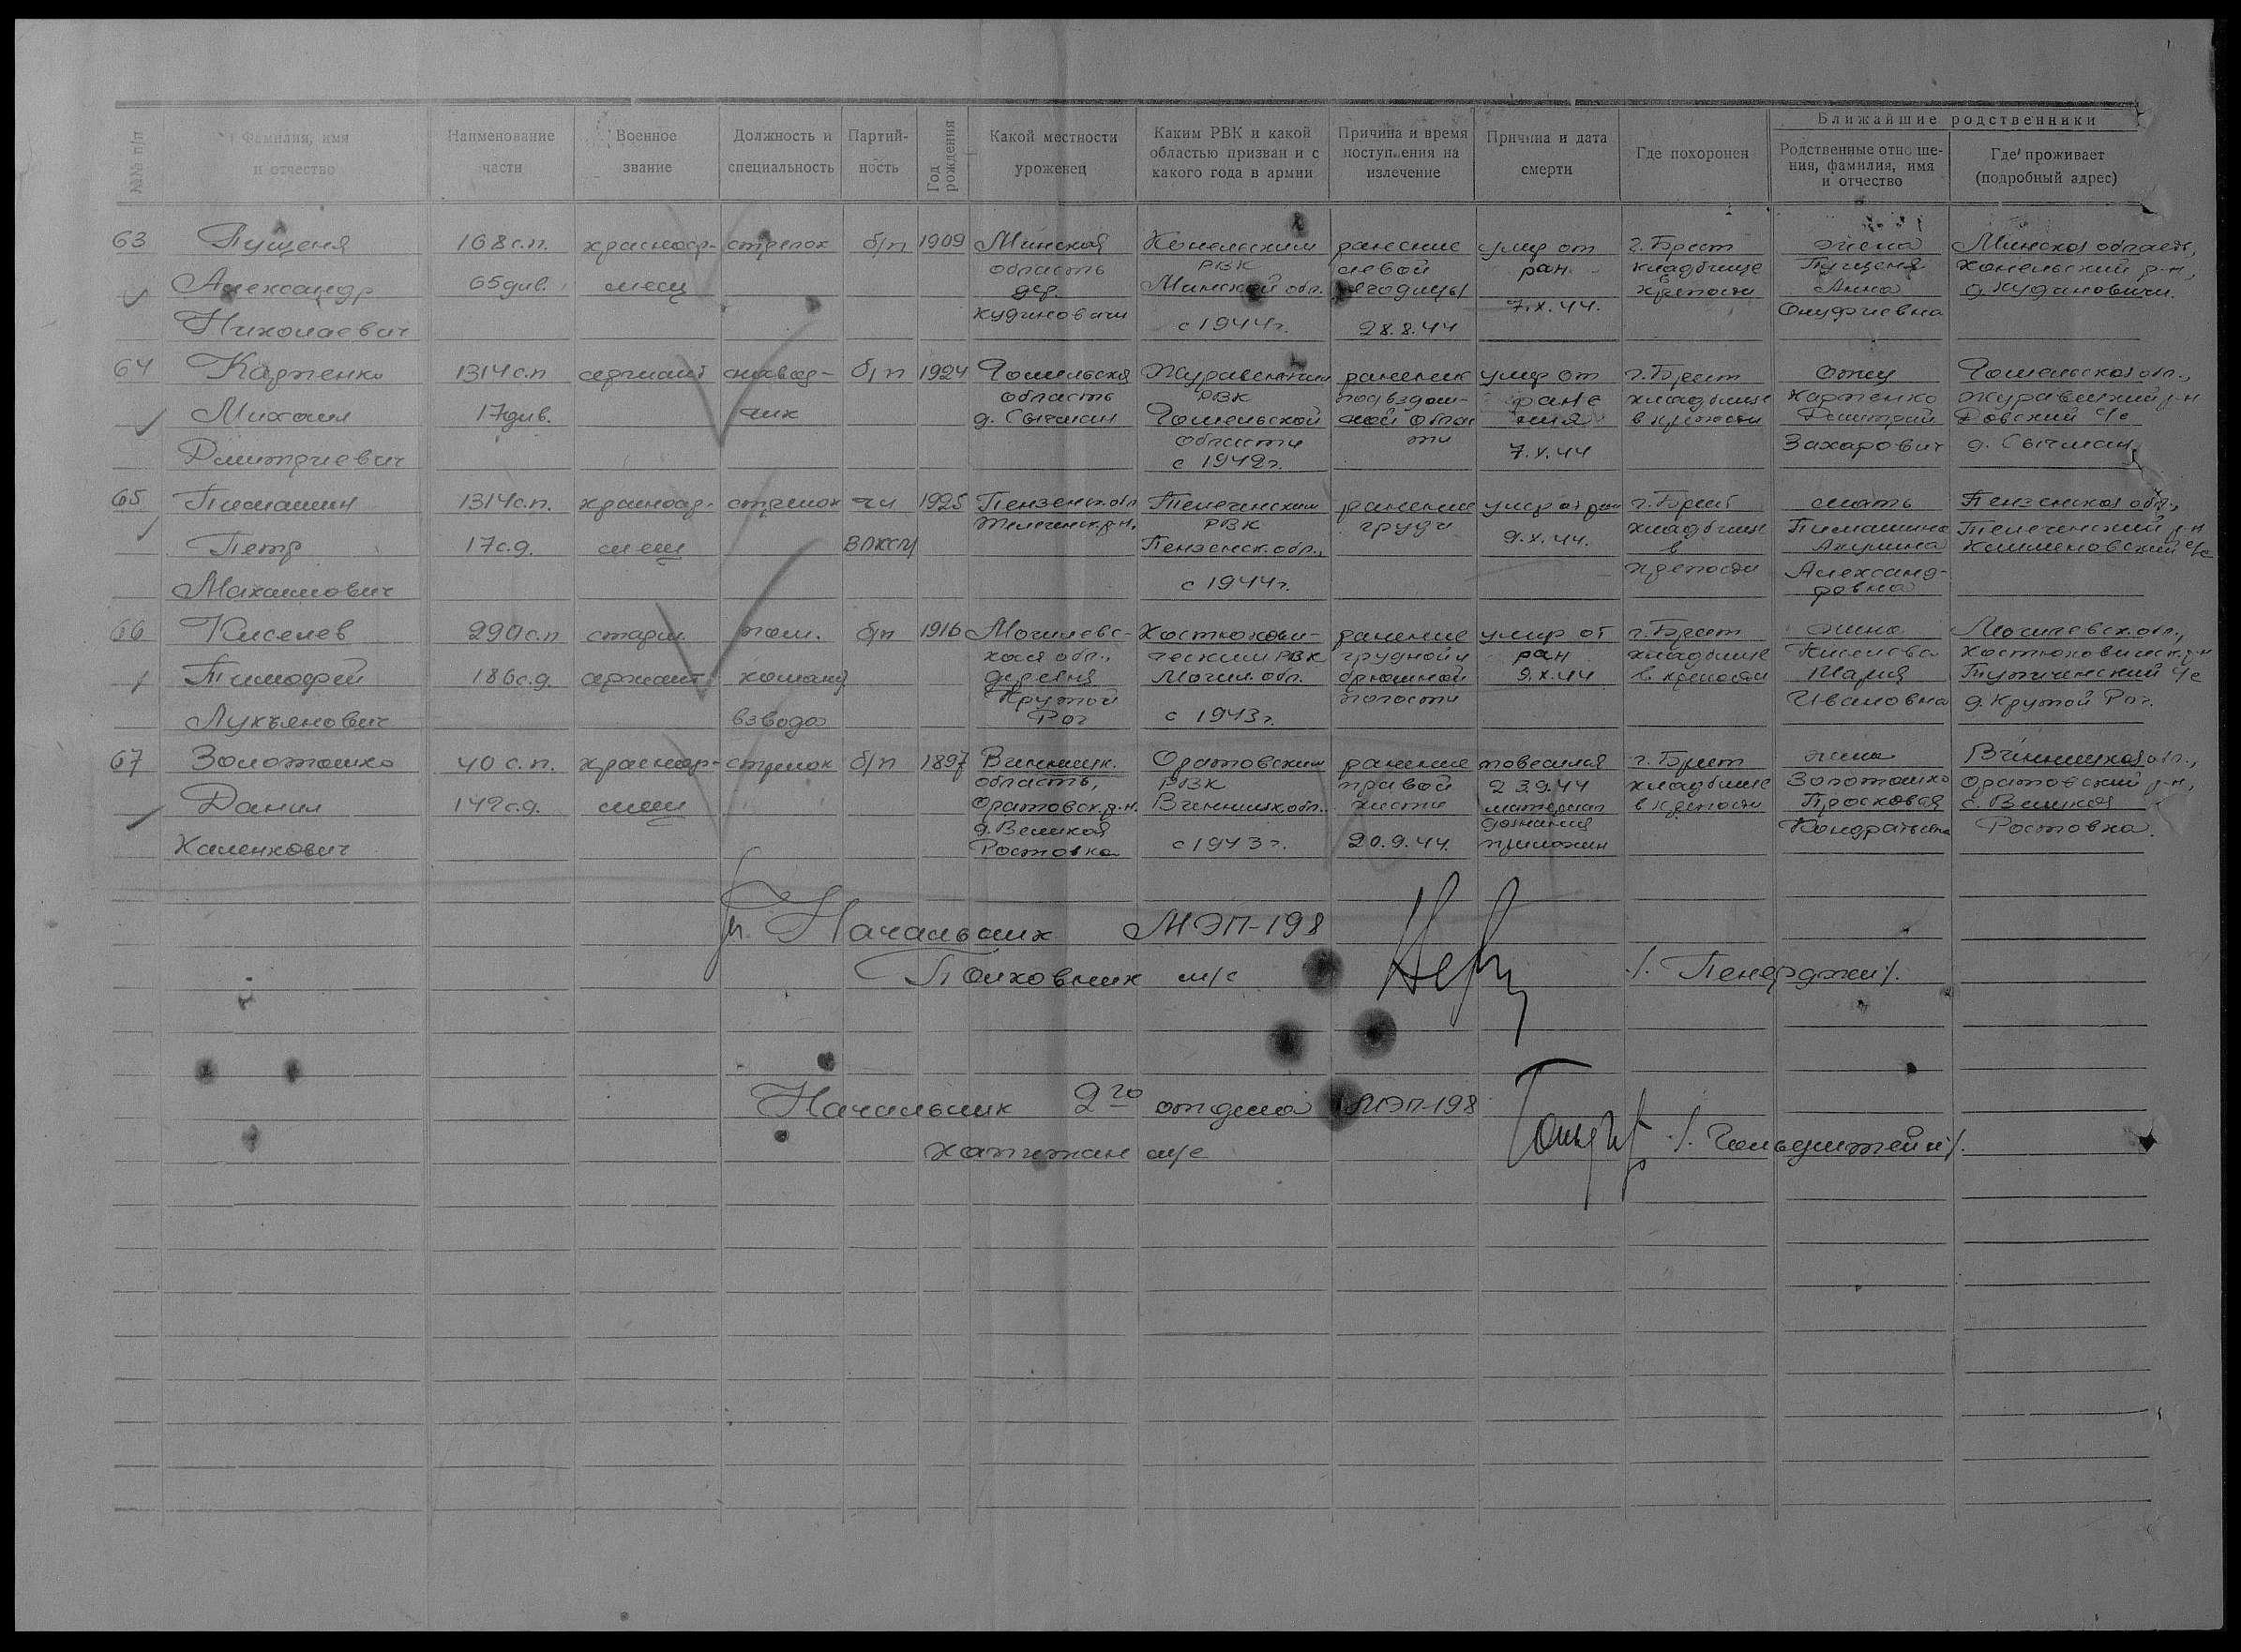 №№ п/п
Фамилия, имя и отчество
Наименование части
Военное звание
Должность и специальность
Партий-ность
Год рождения
Какой местности уроженец
Каким РВК и какой областью призван и с какого года в армии
Причина и время поступления на излечение
Причина и дата смерти
Где похоронен
Ближайшие родственники
Родственные отноше-ния, фамилия, имя и отчество
Где проживает (подробный адрес)
63 Пущеня 168 с.п. красноар- стрелок б/п 1909 Минской Копыльским ранение умер от г. Брест жена Минская область,
область РВК левой ран кладбище Пущеня Копыльский р-н,
Александр 65 див. меец дер. Минской обл. ягодицы 7.X.44. крепости Анна д. Кудиновичи.
Николаевич Кудиновичи с 1944 г. 28.8.44 Онуфриевна
64 Карпенко 1314 с.п. сержант навод- б/п 1924 Гомельская Журавичским ранение умер от г. Брест отец Гомельская обл.,
область РВК подвздош- ране кладбище Карпенко Журавичский р-н
Михаил 17 див. чик д. Сычман Гомельской ной облас ния в крепости Дмитрий Довский с/с
Дмитриевич области ти 7.X.44 Захарович д. Сычман
с 1942 г.
65 Пимашин 1314 с.п. красноар- стрелок чл 1925 Пензенск. обл. Телегинским ранение умер от ран г. Брест мать Пензенская обл.,
Телегинск. р-н. РВК груди кладбище Пимашина Телегинский р-н
Петр 17 с.д. меец ВЛКСМ Пензенск. обл., 9.X.44. в Акулина
крепости Александ-
Михайлович с 1944 г. ровна
66 Киселев 290 с.п. старш. пом. б/п 1916 Могилевс- Костюкови- ранение умер от г. Брест жена Могилевск. обл.,
кая обл., ческим РВК грудной и ран кладбище Киселева Костюковичск. р-н
Тимофей 186 с.д. сержант команд. деревня Могил. обл. брюшной 9.X.44 в крепости Мария с/с
Крутой полости Ивановна д. Крутой Рог.
Лукъянович взвода Рог с 1943 г.
67 Золотошко 40 с.п. красноар- стрелок б/п 1897 Винницк. Оратовским ранение повесился г. Брест жена Винницкая обл.,
область, РВК правой 23.9.44 кладбище Золотошко Оратовский р-н,
Данил 142 с.д. меец Оратовск. р-н. Винницк. обл. кисти материал в крепости Просковья с. Великая
д. Великая дознания Кондратьевна Ростовка.
Каленкович Ростовка с 1943 г. 20.9.44. приложен
Начальник МЭП-198
Полковник м/с
Начальник 2го отдела МЭП-198
капитан м/с /. Гольдштейн/.